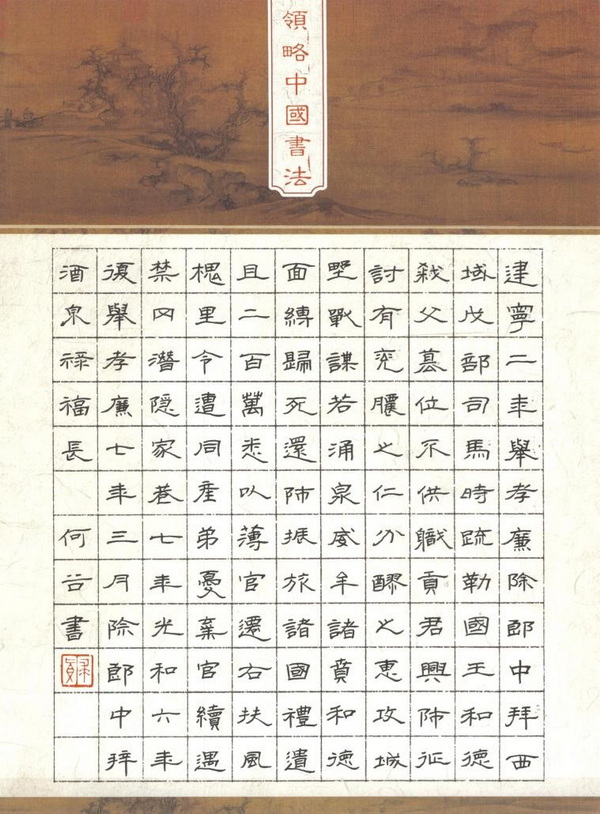 領略中國書法
建寧二年舉孝廉除郎中拜西
域戊部司馬時疏勒國王和德
弒父篡位不供職貢君興師征
討有兗膿之仁分醪之惠攻城
野戰謀若涌泉威牟諸賁和德
面縛歸死還師振旅諸國禮遺
且二百萬悉以薄官遷右扶風
槐里令遭同產弟憂棄官續遇
禁冈潛隱家巷七年光和六年
復舉孝廉七年三月除郎中拜
酒泉祿福長 何谷書